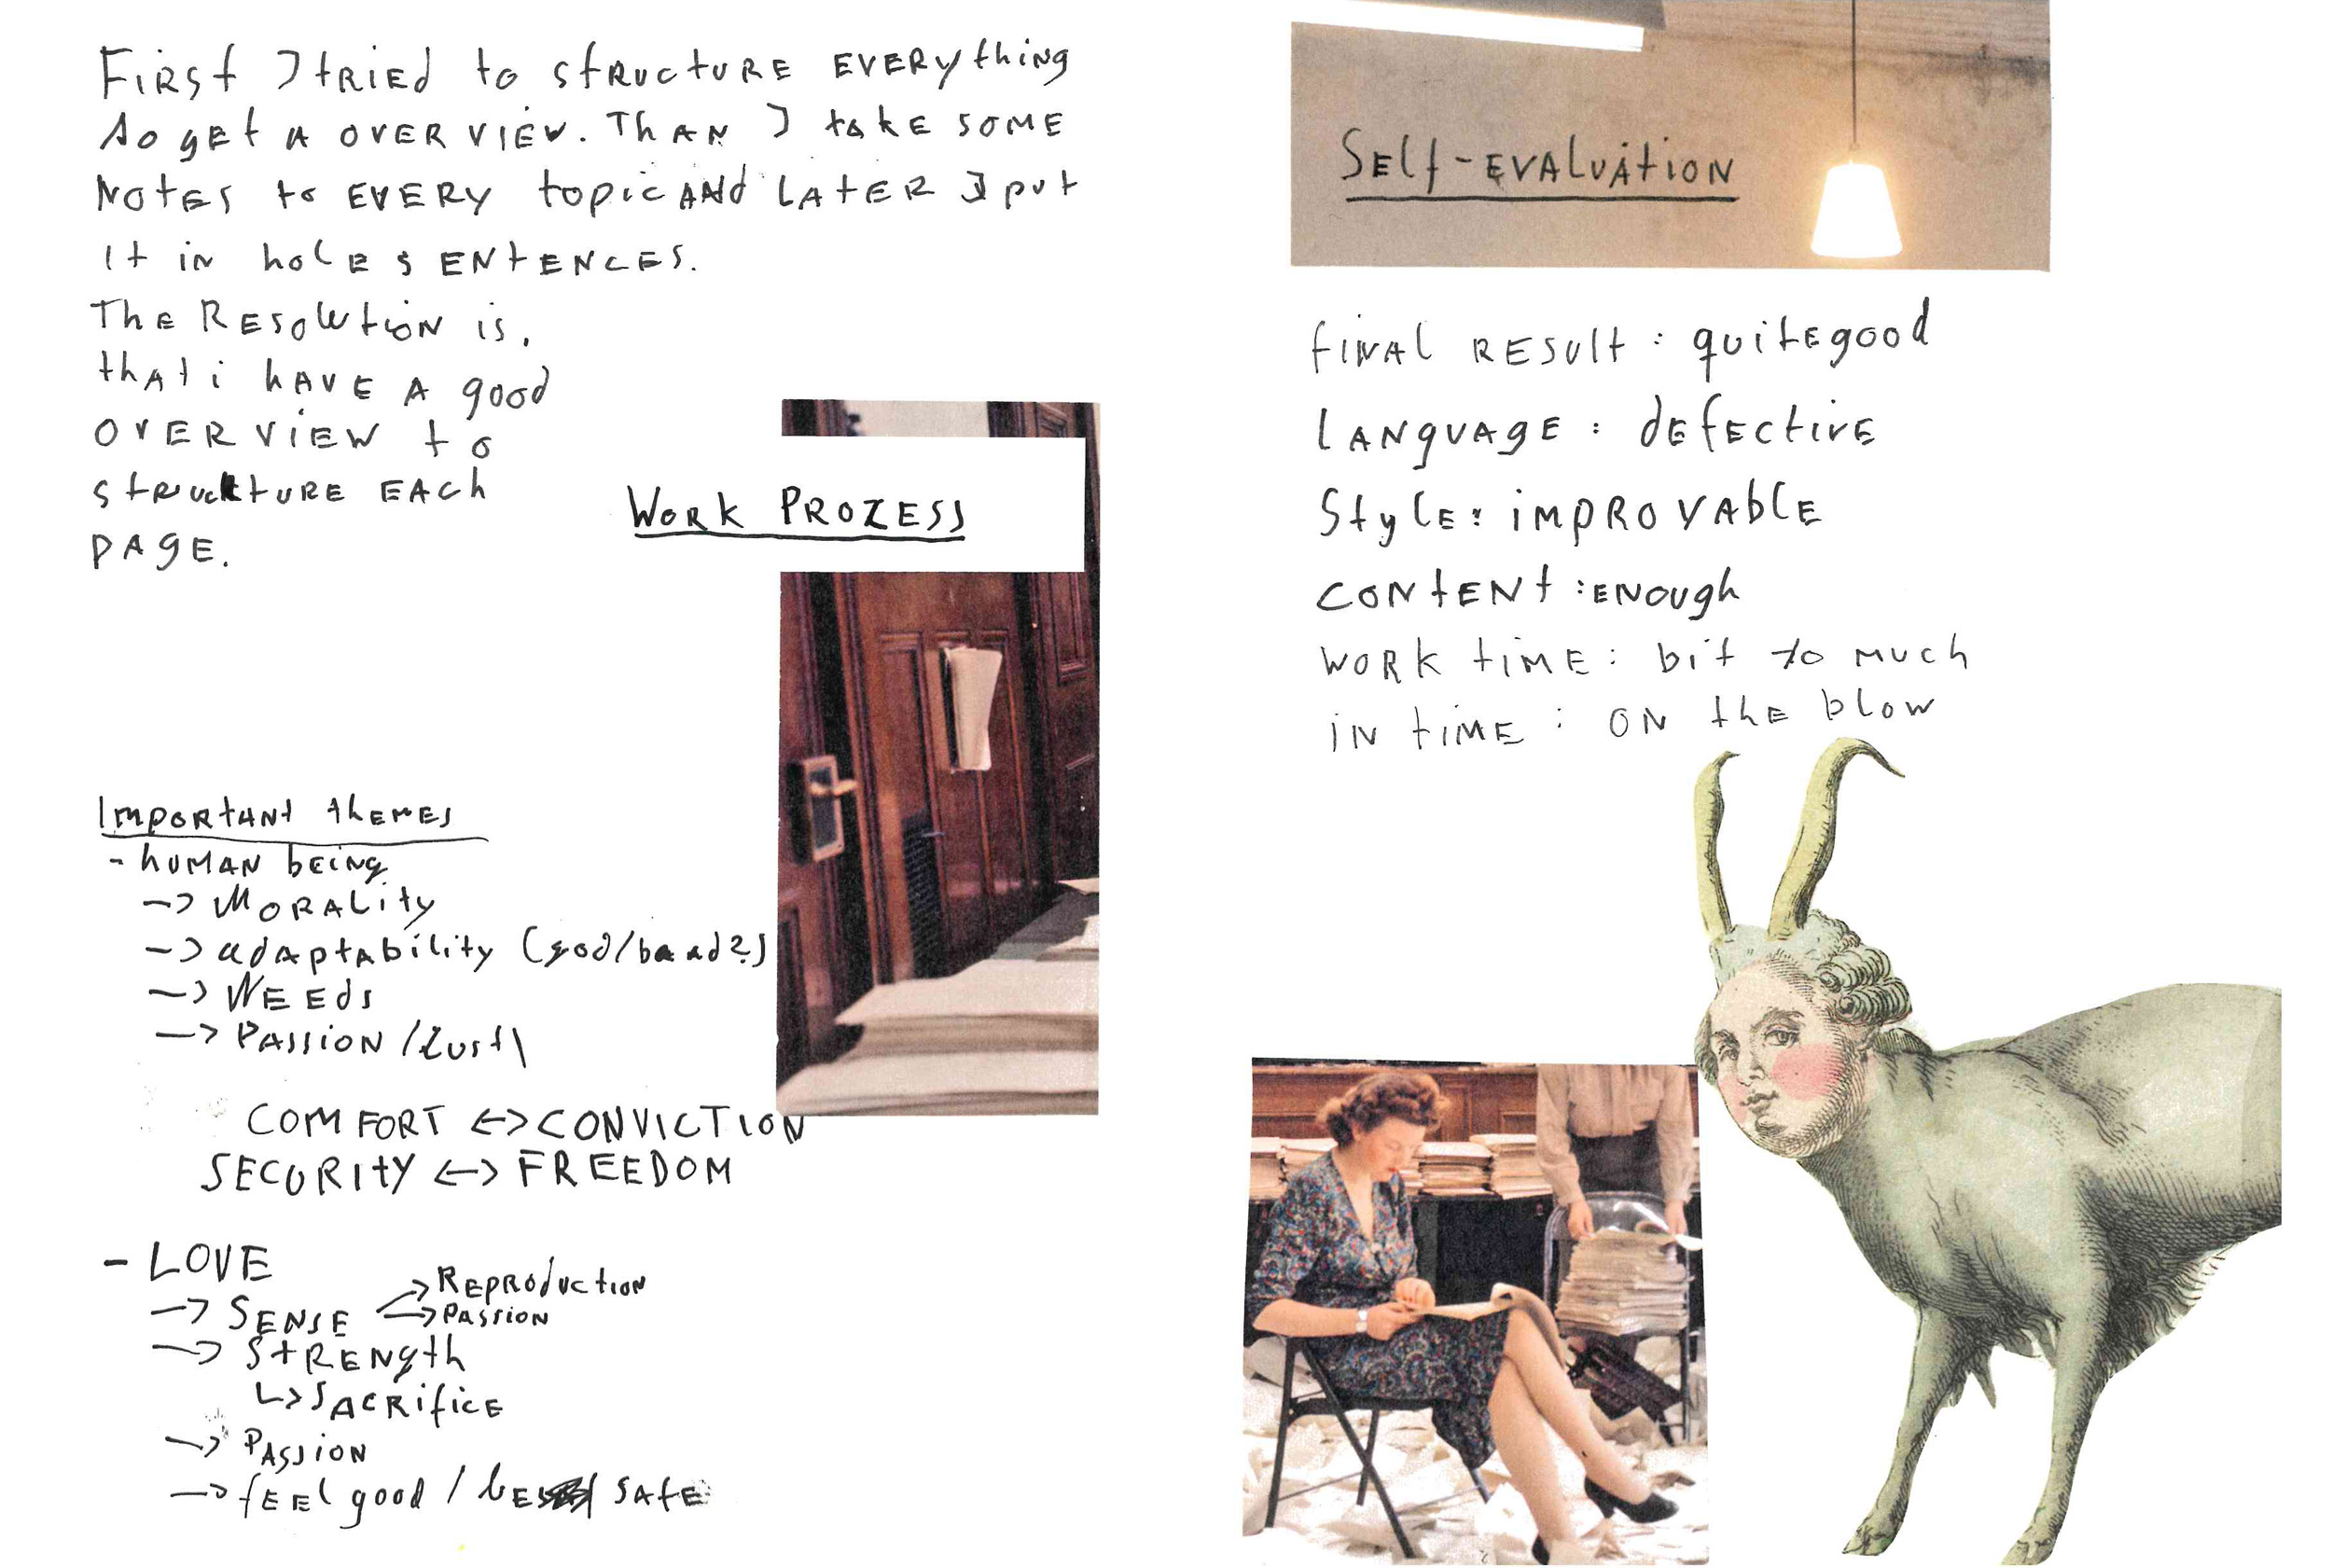 First I tried to structure everything
to get a over view. Than I take some
notes to every topic and later I put
it in hole sentences.
The Resolution is,
that i have a good
over view to
structure each
page.
Work Prozess
Important themes
- human being
-> Morality
-> adaptability (good/baad?)
-> Needs
-> Passion /Lust\
COMFORT <-> CONVICTION
SECURITY <-> FREEDOM
- LOVE
-> Sense -> Reproduction
-> Passion
-> Strength
↳ Sacrifice
-> Passion
-> feel good / be safe
Self-evaluation
final result : quite good
Language : defective
Style : improvable
content : enough
work time : bit to much
in time : on the blow